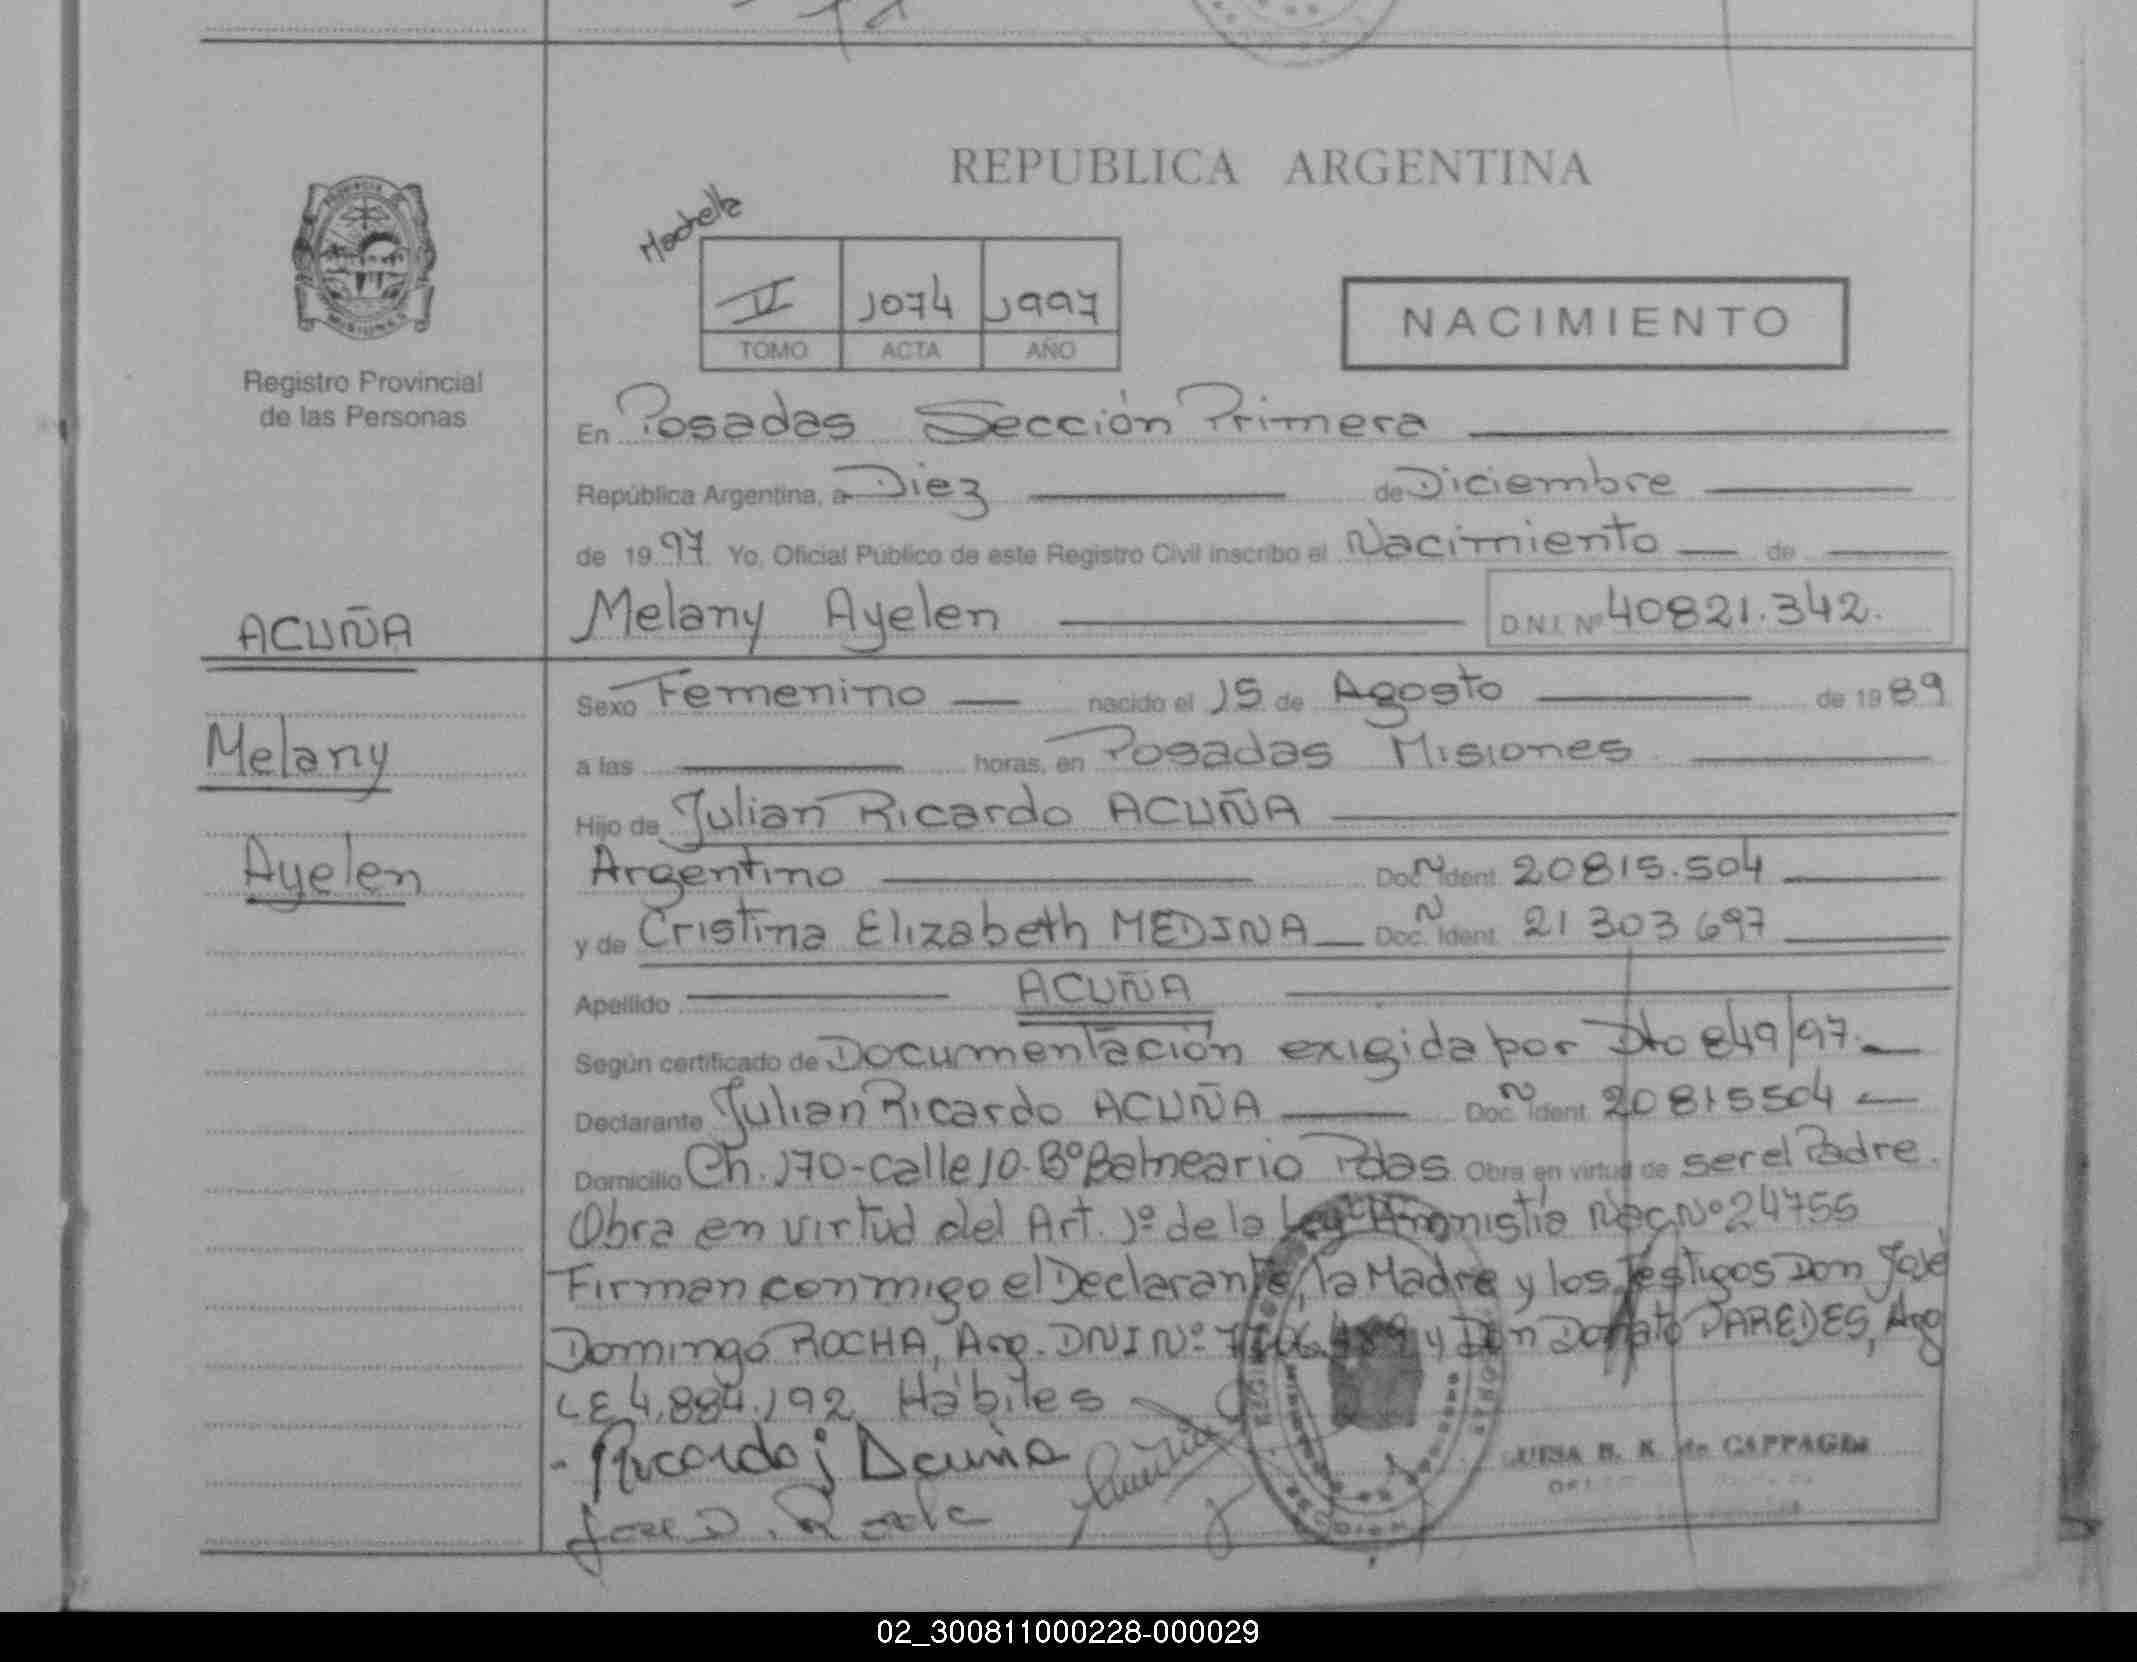 REPUBLICA ARGENTINA
Mochela
II 1074 1997
TOMO ACTA AÑO
NACIMIENTO
Registro Provincial
de las Personas
En Posadas Sección Primera
República Argentina, a Diez de Diciembre
de 1997 Yo, Oficial Público de este Registro Civil inscribo el Nacimiento de
ACUÑA
Melany Ayelen D.N.I. Nº 40821.342.
Sexo Femenino nacido el 15 de Agosto de 1989
Melany
a las horas, en Posadas Misiones
Hijo de Julian Ricardo ACUÑA
Ayelen
Argentino Doc. Ident. N 20815.504
y de Cristina Elizabeth MEDINA Doc. Ident. N 21 303 697
Apellido ACUÑA
Según certificado de Documentación exigida por Dto 849/97.
Declarante Julian Ricardo ACUÑA Doc. Ident. N 20815504
Domicilio Ch. 170-calle 10-Bº Balneario Pdas Obra en virtud de ser el Padre.
Obra en virtud del Art. 1º de la Ley Amnistia Nac Nº 24755
Firman conmigo el Declarante, la Madre y los Testigos Don José
Domingo ROCHA, Arg. DNI Nº y Don Donato PAREDES, Arg
LE 4.884.192 Hábiles
Ricardo j Acuña
Jose D.
de CAPPAGLI
02_300811000228-000029